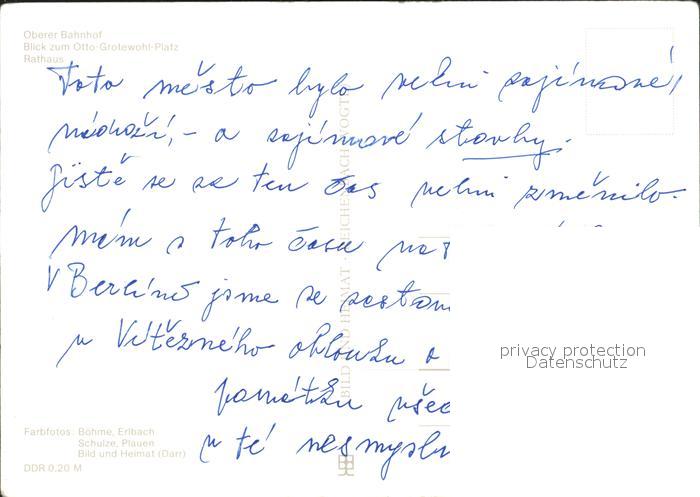 Oberer Bahnhof
Blick zum Otto-Grotewohl-Platz
Rathaus
Toto město bylo velmi zajímavé,
nádraží, - a zajímavé stavby.
Jistě se za ten čas velmi změnilo.
mám z toho času
V Berlíně jsme se
u Vítězného oblouku a
památku všec
u té nesmysln
privacy protection
Datenschutz
BILD UND HEIMAT · REICHENBACH (VOGTL)
Farbfotos: Böhme, Erlbach
Schulze, Plauen
Bild und Heimat (Darr)
DDR 0,20 M